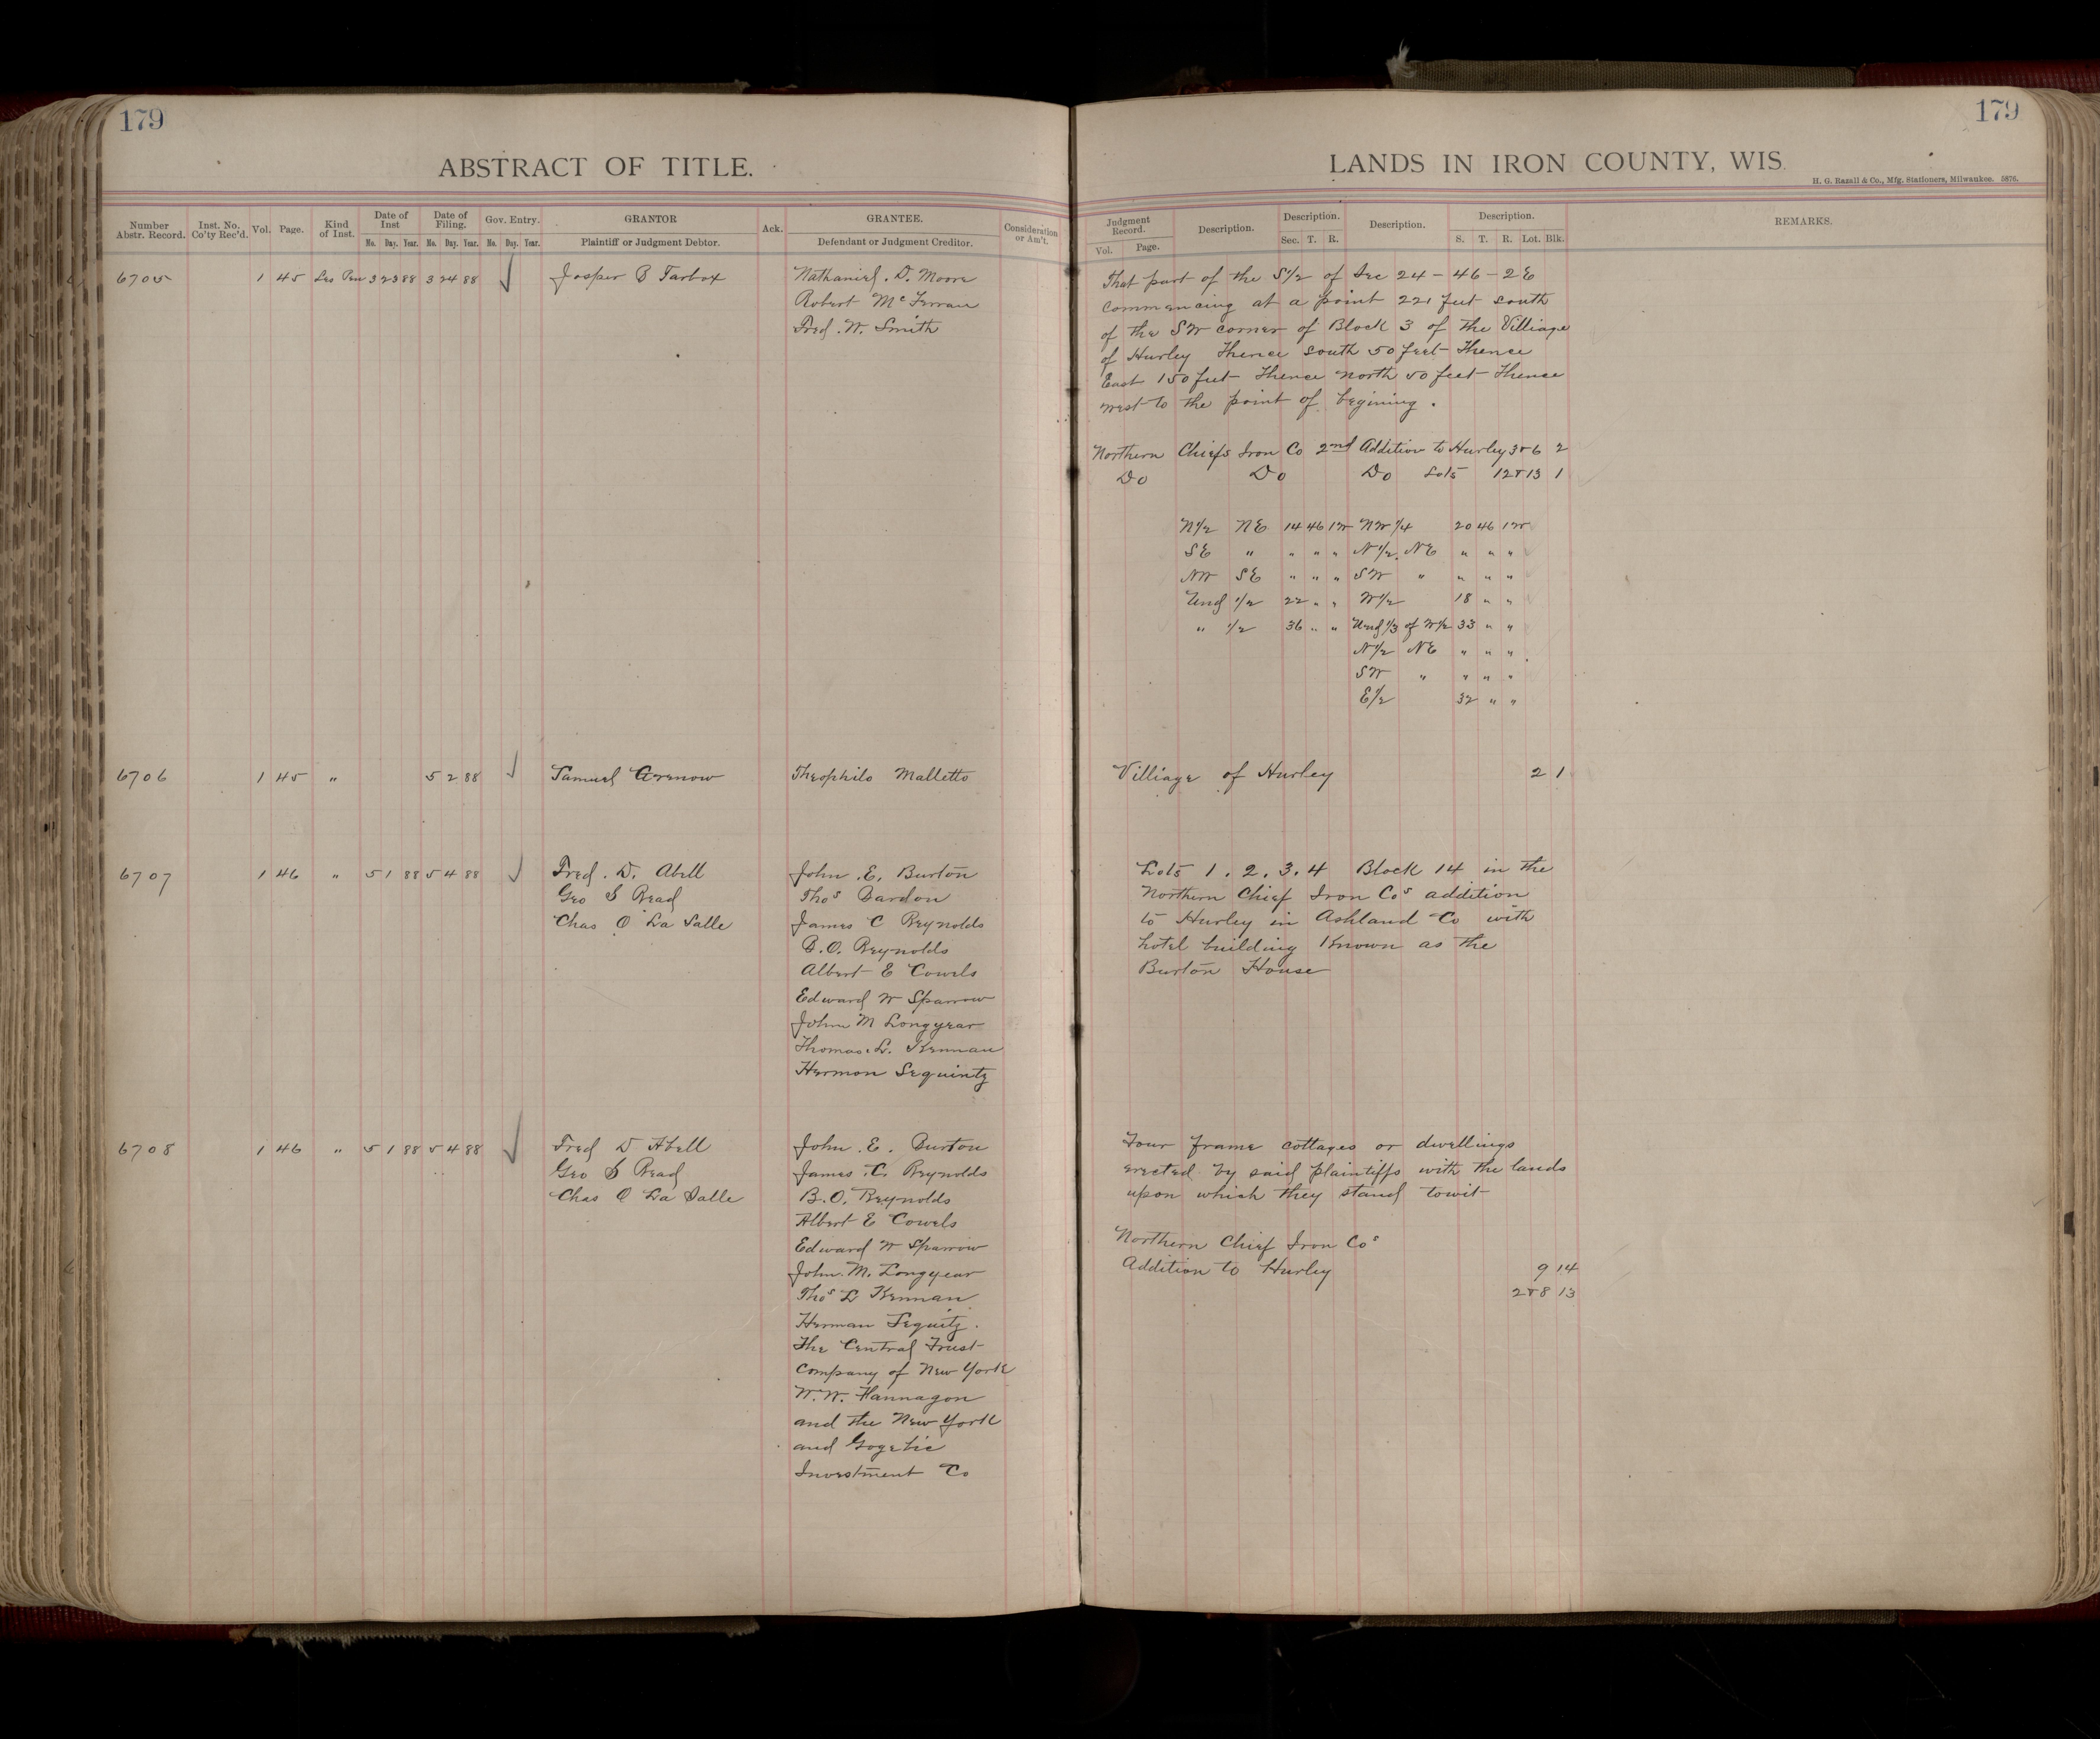 179
ABSTRACT OF TITLE.
Number Abstr. Record. Inst. No. Co'ty Rec'd. Vol. Page. Kind of Inst. Date of Inst Date of Filing. Gov. Entry. GRANTOR Ack. GRANTEE. Consideration or Am't.
Mo. Day. Year. Mo. Day. Year. Mo. Day. Year. Plaintiff or Judgment Debtor. Defendant or Judgment Creditor.
6705 1 45 Les Pen 3 23 88 3 24 88 ✓ Jasper B Tarbox Nathaniel. D. Moore
Robert McFerran
Fred. W. Smith
6706 1 45 " 5 2 88 ✓ Samuel Theophilo Malletto
6707 1 46 " 5 1 88 5 4 88 ✓ Fred. D. Abell John. E. Burton
Geo S Read Thos Bardon
Chas O La Salle James C Reynolds
B.O. Reynolds
Albert E Cowels
Edward W Sparrow
John M Longyear
Thomas. L. Kennan
Hermon Sequintz
6708 1 46 " 5 1 88 5 4 88 ✓ Fred D Abell John. E. Burton
Geo S Read James. C. Reynolds
Chas O La Salle B.O. Reynolds
Albert E Cowels
Edward W Sparrow
John. M. Longyear
Thos L Kennan
Herman Sequitz.
The Central Trust
Company of New York
W.W. Hannagon
and the New York
and Gogebic
Investment Co
179
LANDS IN IRON COUNTY, WIS.
H. G. Razall & Co., Mfg. Stationers, Milwaukee. 5876.
Judgment Record. Description. Description. Description. Description. REMARKS.
Vol. Page. Sec. T. R. S. T. R. Lot. Blk.
That part of the S1/2 of Sec 24 - 46 - 2E
Commencing at a point 221 feet south
of the SW corner of Block 3 of the Villiage
of Hurley Thence south 50 feet Thence
East 150 feet Thence North 50 feet Thence
west to the point of begining.
Northern Chiefs Iron Co 2nd Addition to Hurley 3&6 2
Do Do Do Lots 12&13 1
N1/2 NE 14 46 1W NW1/4 20 46 1W
SE " " " " N1/2 NE " " "
NW SE " " " SW " " " "
Und 1/2 22 " " W1/2 18 " "
" 1/2 36 " " Und 1/3 of W1/2 33 " "
N1/2 NE " " "
SW " " " "
E1/2 32 " "
Villiage of Hurley 2 1
Lots 1. 2. 3. 4 Block 14 in the
Northern Chief Iron Cos addition
to Hurley in Ashland Co with
hotel building Known as the
Burton House
Four frame cottages or dwellings
erected by said plaintiffs with the lands
upon which they stand towit
Northern Chief Iron Cos
Addition to Hurley 9 14
2&8 13